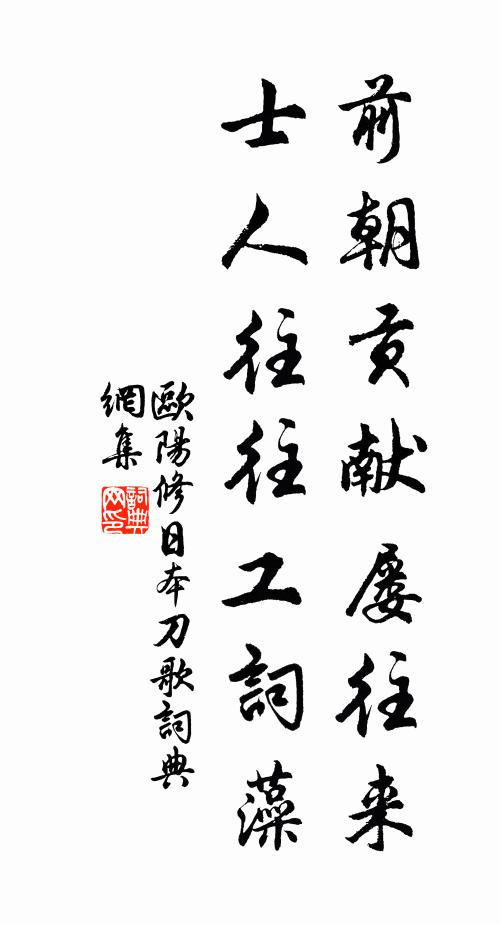 前朝贡献屡往来
士人往往工詞藻
歐陽修日本刀歌詞典
網集
詞典
网印